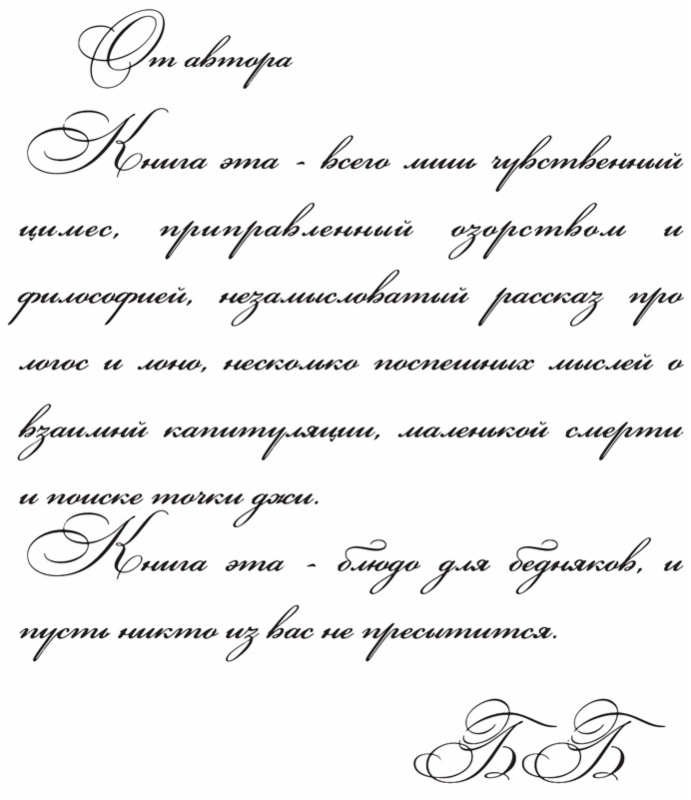 От автора
Книга эта - всего лишь чувственный
цимес, приправленный озорством и
философией, незамысловатый рассказ про
логос и лоно, несколько поспешных мыслей о
взаимнй капитуляции, маленькой смерти
и поиске точки джи.
Книга эта - блюдо для бедняков, и
пусть никто из вас не пресытится.
ББ